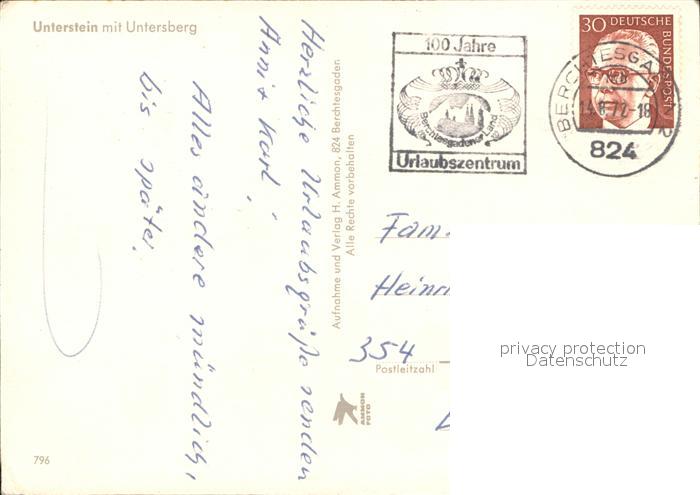 Unterstein mit Untersberg
Herzliche Urlaubsgrüße senden
Anni + Karl.
Alles andere mündlich,
bis später.
Aufnahme und Verlag H. Ammon, 824 Berchtesgaden
Alle Rechte vorbehalten
100 Jahre
Berchtesgadener Land
Urlaubszentrum
30 DEUTSCHE
BUNDESPOST
BERCHTESGADEN
824
Fam.
354
Postleitzahl
AMMON
FOTO
privacy protection
Datenschutz
796